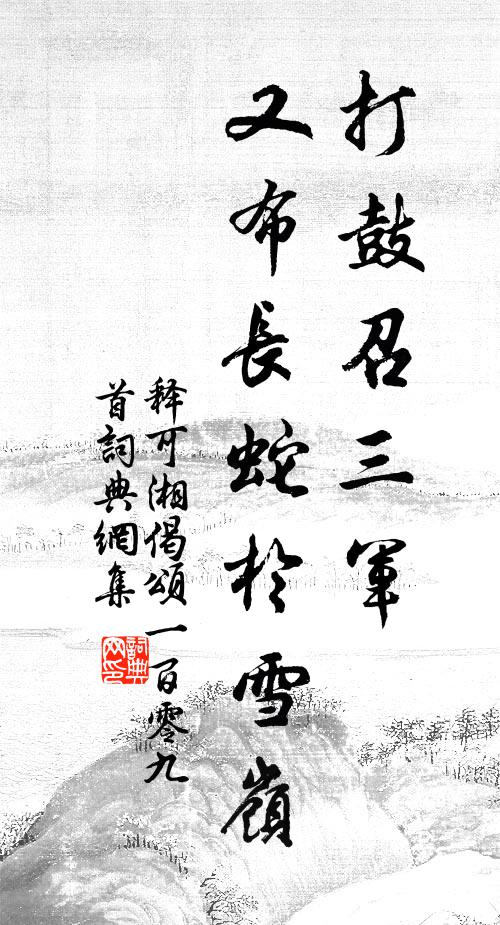 打鼓召三軍
又布長蛇於雪嶺
釋可湘偈頌一百零九
首詞典網集
詞典
网印